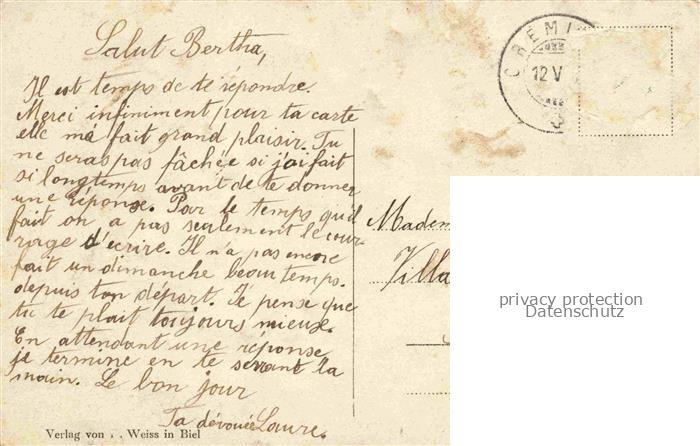 Salut Bertha,
Il est temps de te répondre.
Merci infiniment pour ta carte
elle m'a fait grand plaisir. Tu
ne seras pas fâchée si j'ai fait
si longtemps avant de te donner
une réponse. Par le temps qu'il
fait on a pas sealement le cour-
riage d'écrire. Il n'a pas encore
fait un dimanche beau temps.
depuis ton départ. Je pense que
tu te plait toujours mieux.
En attendant une réponse
je termine en te serrant la
main. Le bon jour
Ta dévouée Laure.
Verlag von . . Weiss in Biel
CRÉMI
12 V
Madem
Villa
privacy protection
Datenschutz